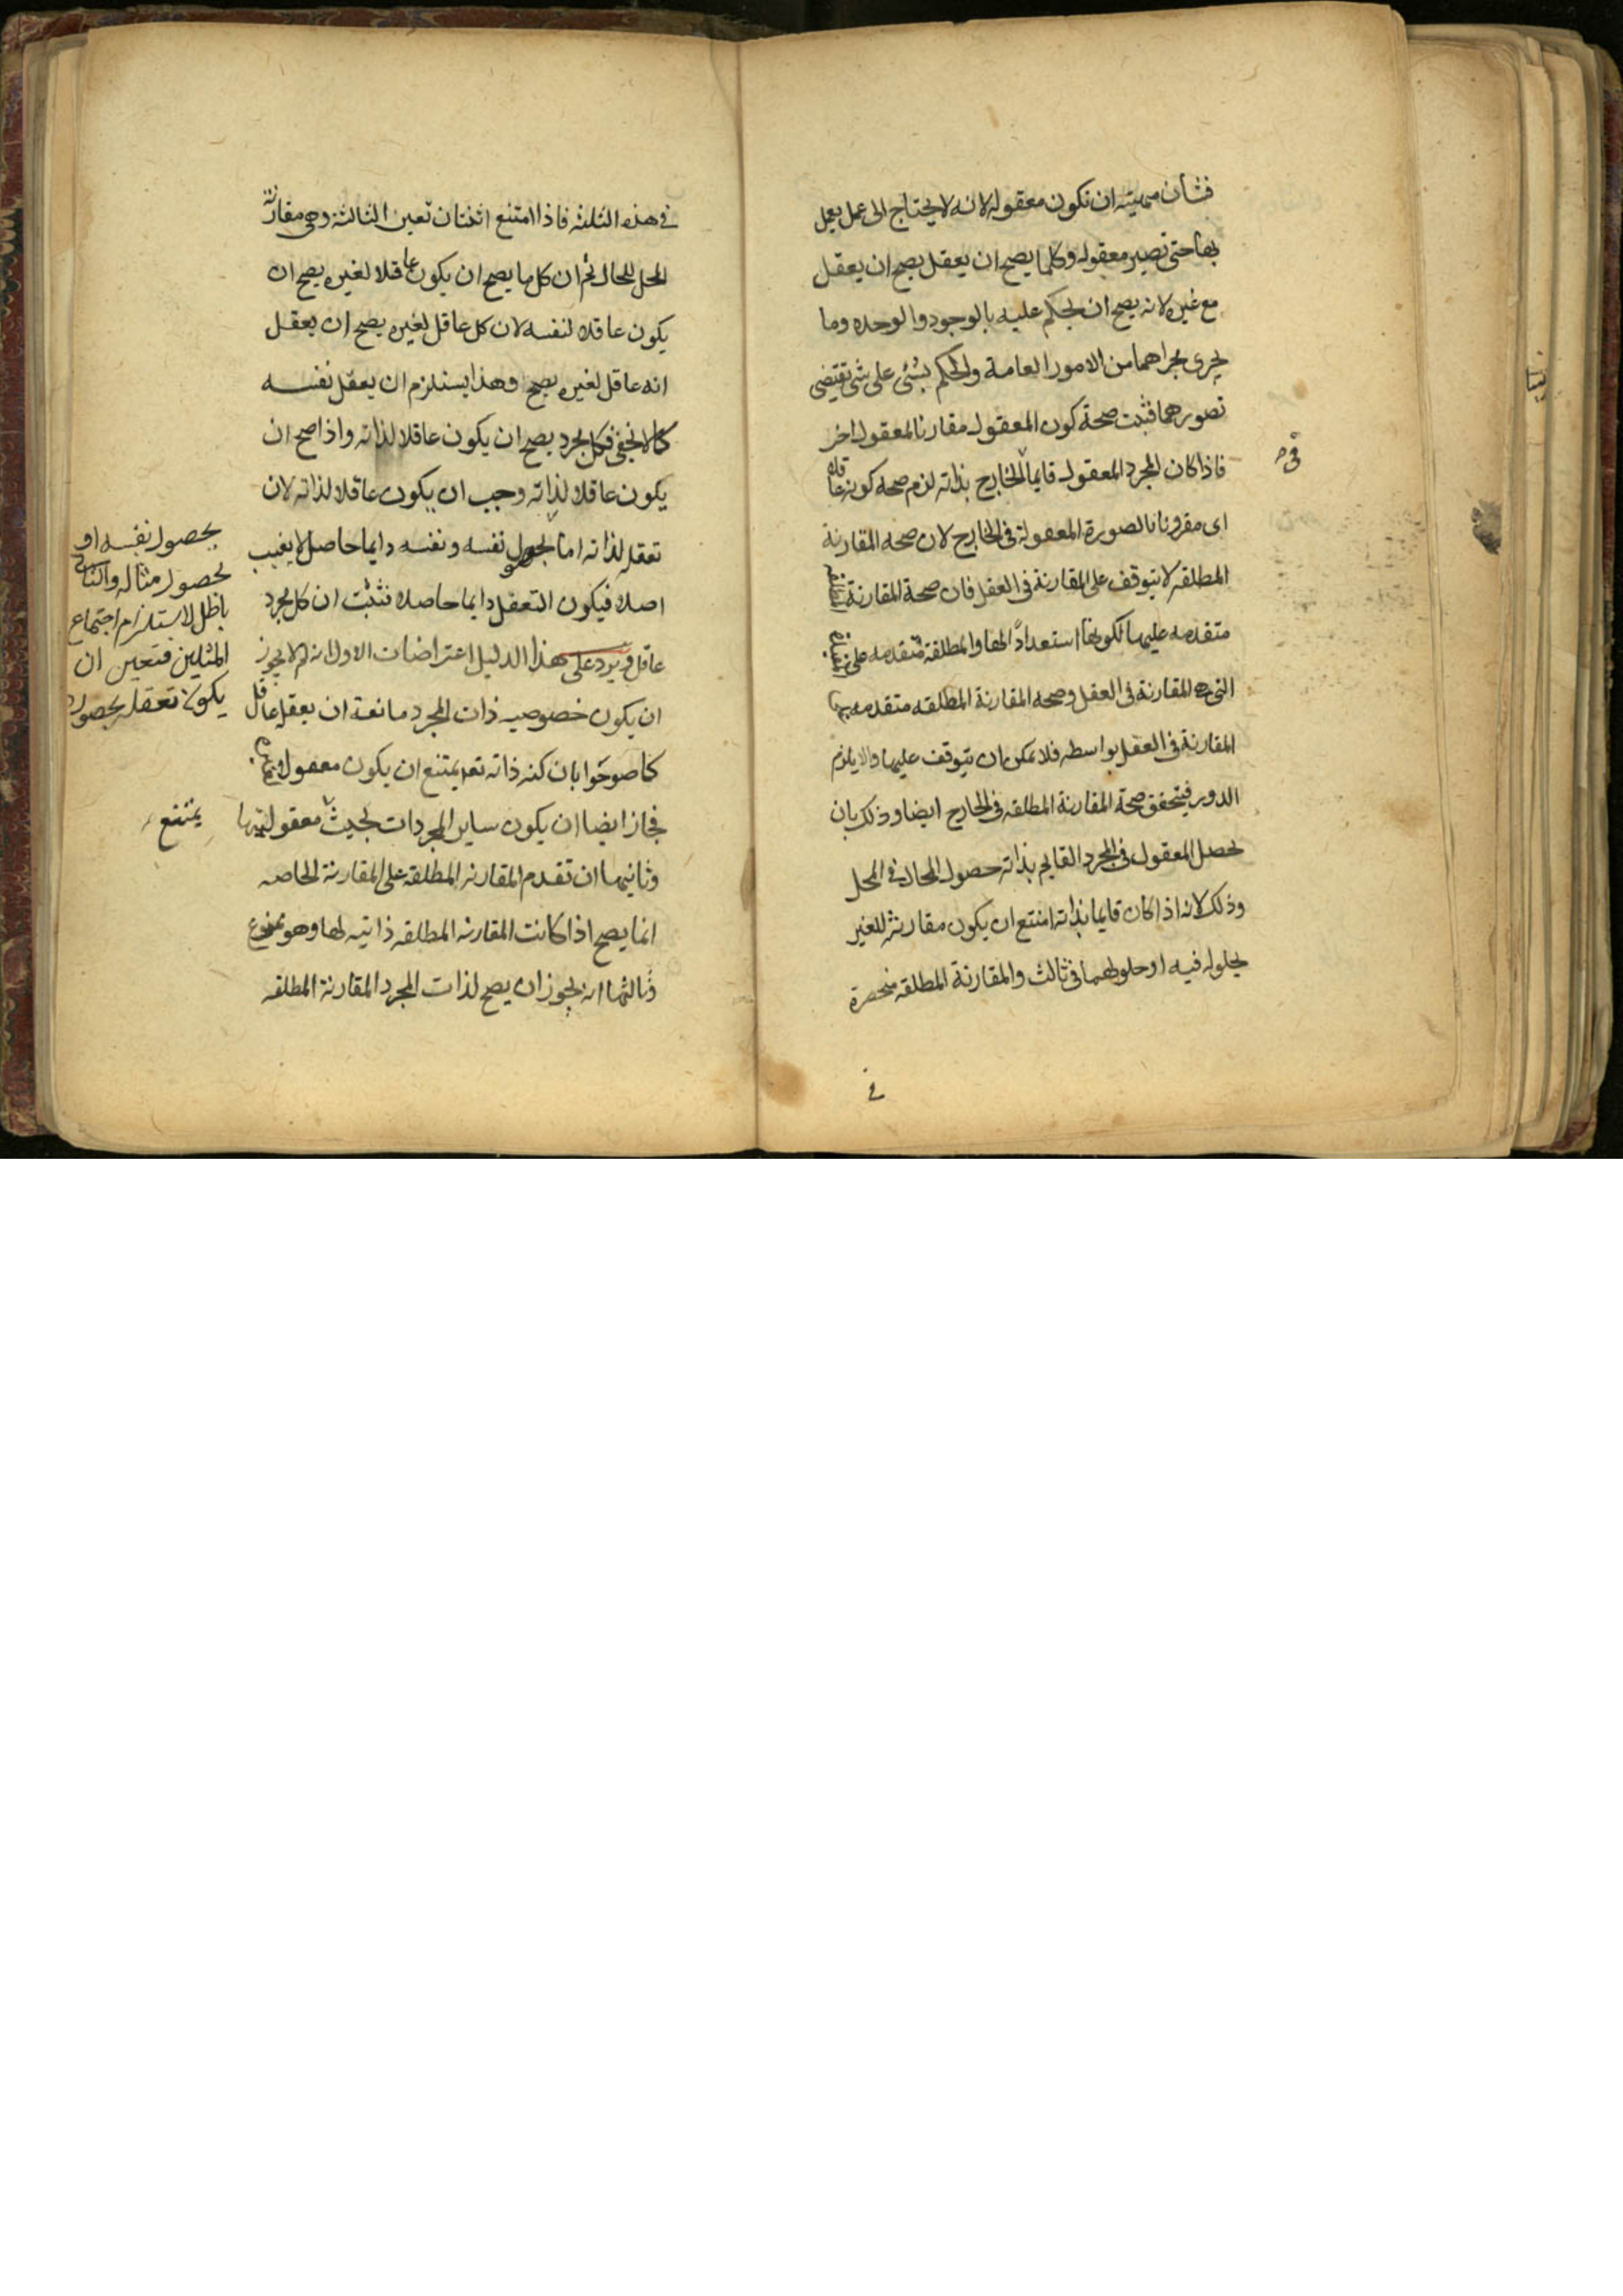 فشأن مهيته ان تكون معقوله لانه لا يحتاج الى عمل يعمل
بها حتى تصير معقوله وكلما يصح ان يعقل يصح ان يعقل
مع غيره لانه يصح ان يحكم عليه بالوجود والوحده وما
يجرى مجراهما من الامور العامة والحكم بشئ على شئ تقتضى
تصورهما فثبت صحة كون المعقول مقارنا لمعقول اخر
فاذا كان المجرد المعقول قايما الخارج بذاته لزم صحه كونه عاقلا
فى
اى مقرونا بالصورة المعقولة فى الخارج لان صحه المقارنة
المطلقه لا يتوقف على المقارنة فى العقل فان صحة المقارنة المطلقه
متقدمه عليها لكونها استعدادا لها والمطلقة متقدمه على
التى المقارنة فى العقل وصحه المقارنة المطلقه متقدمه
المقارنة فى العقل بواسطه فلا يمكن ان يتوقف عليها والا يلزم
الدور فيتحقق صحة المقارنة المطلقه فى الخارج ايضا وذلك بان
يحصل المعقول فى المجرد القايم بذاته حصول الحال فى المحل
وذلك لانه اذا كان قايما بذاته امتنع ان يكون مقارنته للغير
بحلوله فيه او حلولهما فى ثالث والمقارنة المطلقه منحصرة
فى
فى هذه الثلثه فاذا امتنع اثنتان تعين الثالثة وهى مقارنة
المحل للحال ثم ان كل ما يصح ان يكون عاقلا لغيره يصح ان
يكون عاقلا لنفسه لان كل عاقل لغيره يصح ان يعقل
انه عاقل لغيره يصح وهذا يستلزم ان يعقل نفسه
كما لا يخفى فكل مجرد يصح ان يكون عاقلا لذاته واذا صح ان
يكون عاقلا لذاته وجب ان يكون عاقلا لذاته لان
تعقله لذاته اما بحصول نفسه ونفسه دايما حاصل لا يغيب
اصلا فيكون التعقل دايما حاصلا فثبت ان كل مجرد
عاقل ويرد على هذا الدليل اعتراضات الاول انه لم لا يجوز
ان يكون خصوصيه ذات المجرد مانعة ان يعقله عاقل
كما صرحوا بان كنه ذاته تعم يمتنع ان يكون معقولا
فجاز ايضا ان يكون ساير المجردات بحيث معقوليتها
وثانيها ان تقدم المقارنه المطلقه على المقارنة الخاصه
انما يصح اذا كانت المقارنه المطلقه ذاتيه لها وهو ممنوع
وثالثها انه يجوز ان يصح لذات المجرد المقارنة المطلقه
بحصول نفسه او
بحصول مثاله والثانى
باطل لاستلزام اجتماع
المثلين فتعين ان
يكون تعقله بحصول
يمتنع